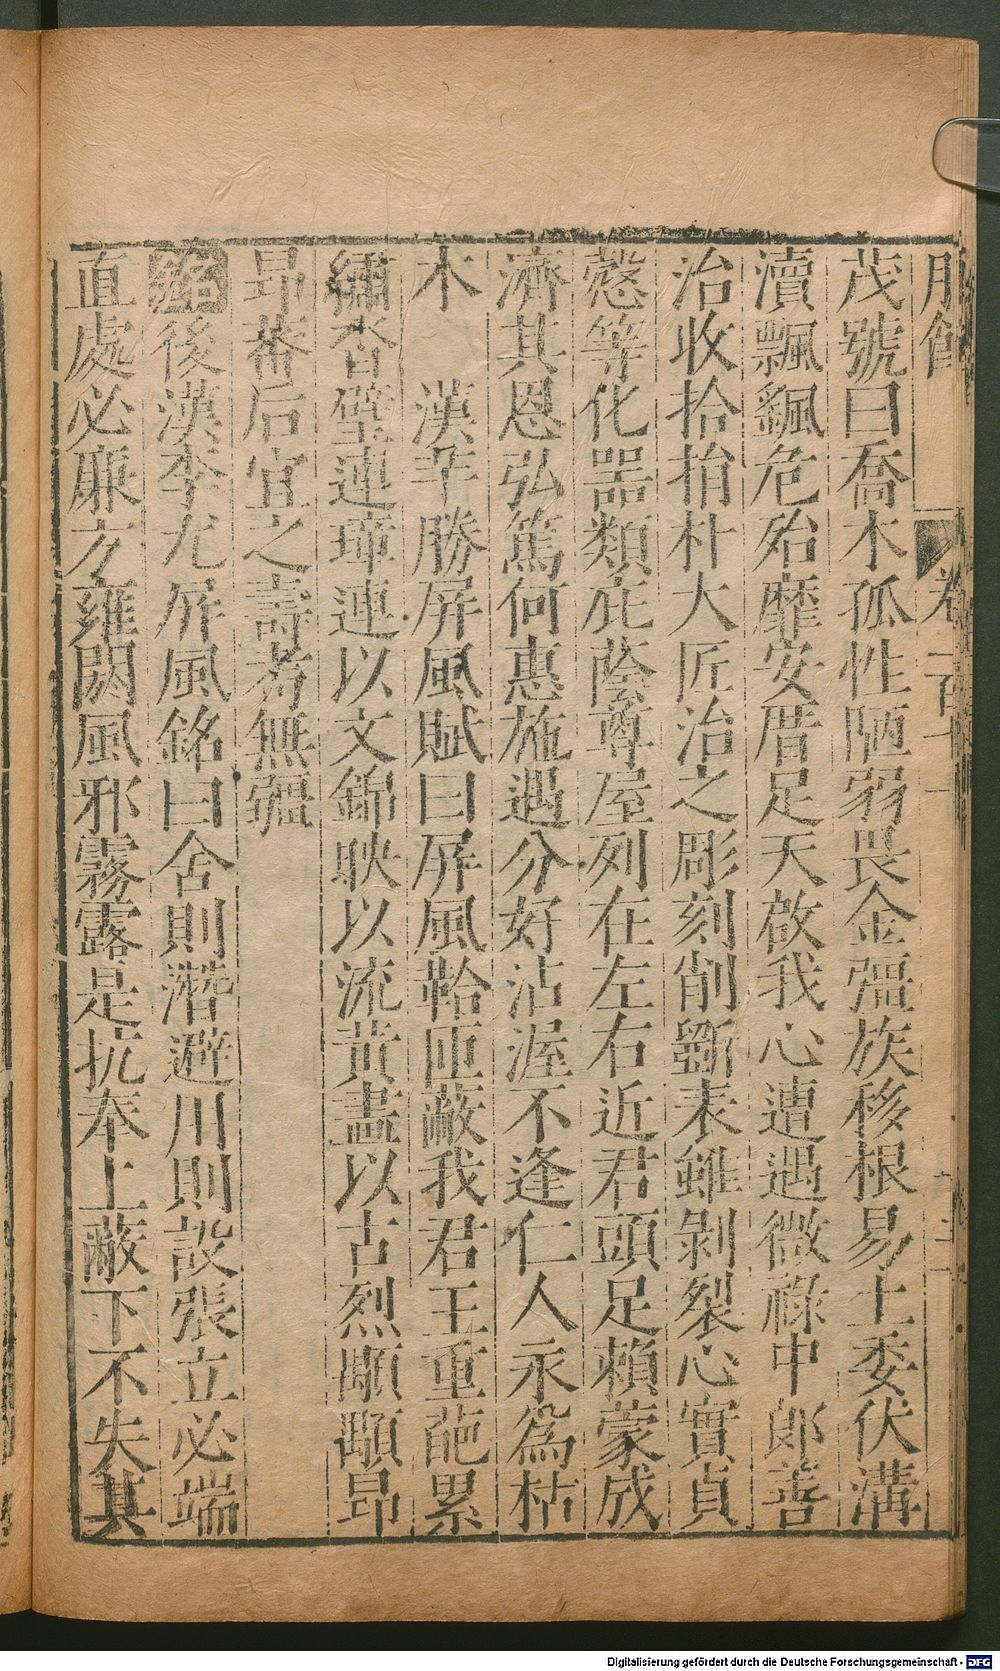 服飾 卷一百十
茂號曰喬木孤性陋弱畏金彊族移根易土委伏溝
瀆飄颻危殆靡安厝足天啟我心遭遇微祿中郎善
治收拾捎朴大匠治之彫刻削斲表雖剝裂心實貞
慤等化器類庇蔭尊屋列在左右近君頭足賴蒙成
濟其恩弘篤何惠施遇分好沾渥不逢仁人永為枯
木 漢羊勝屏風賦曰屏風鞈匝蔽我君王重葩累
繡沓壁連璋連以文錦映以流黃畫以古烈顒顒昂
昂蕃后宜之壽考無彊
銘後漢李尤屏風銘曰舍則潛避川則設張立必端
直處必廉方雍閼風邪霧露是抗奉上蔽下不失其
Digitalisierung gefördert durch die Deutsche Forschungsgemeinschaft - DFG